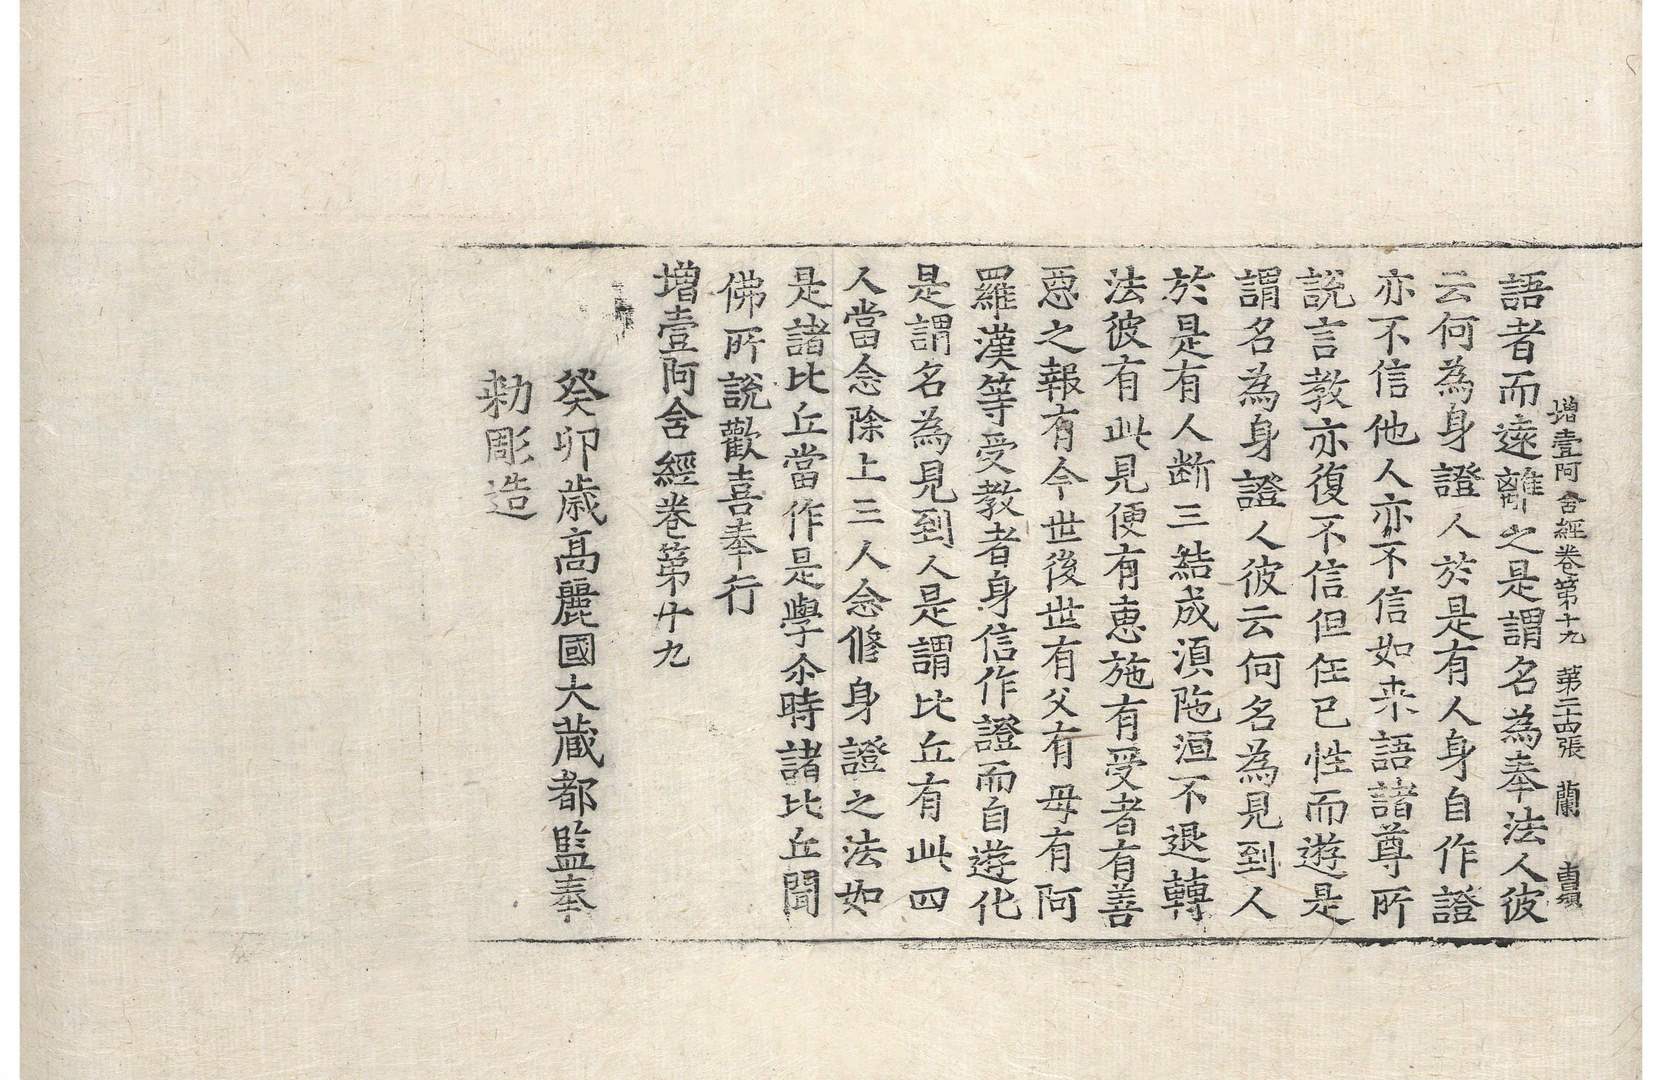 增壹阿含經卷第十九 第二十四張 蘭
語者而遠離之是謂名為奉法人彼
云何為身證人於是有人身自作證
亦不信他人亦不信如来語諸尊所
說言教亦復不信但任已性而遊是
謂名為身證人彼云何名為見到人
於是有人断三結成湏陁洹不退轉
法彼有此見便有惠施有受者有善
惡之報有今世後世有父有母有阿
羅漢等受教者身信作證而自遊化
是謂名為見到人是謂比丘有此四
人當念除上三人念修身證之法如
是諸比丘當作是學尒時諸比丘聞
佛所說歡喜奉行
增壹阿含經卷第十九
癸卯歲高麗國大藏都監奉
勑彫造